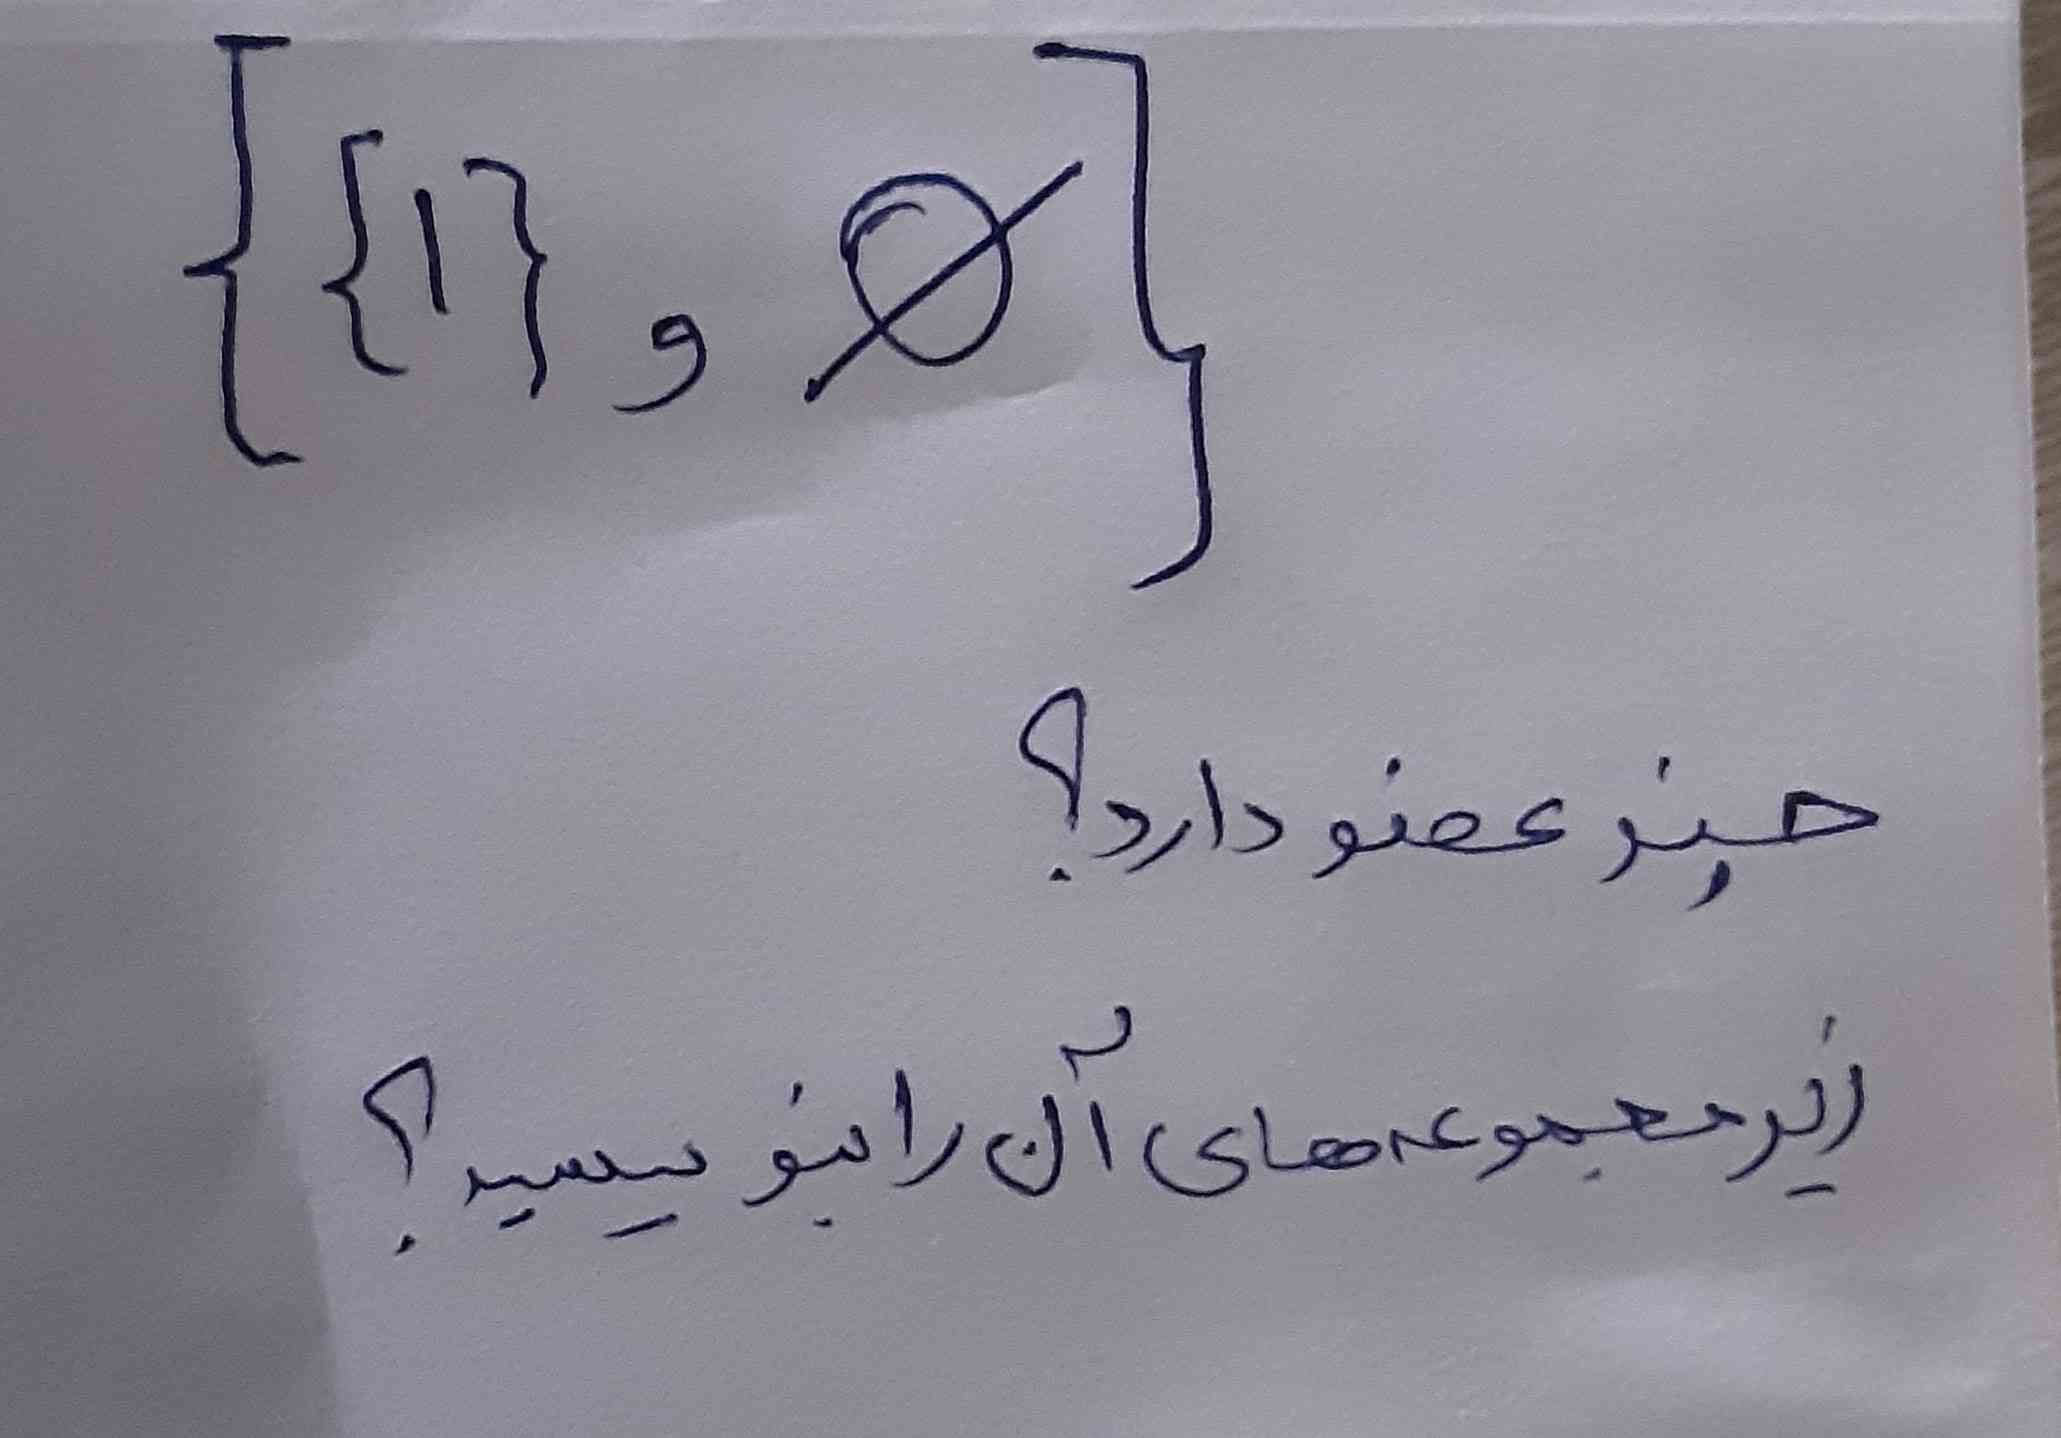 {{۱} و ∅}
چند عضو دارد؟
زیر مجموعه‌های آن را بنویسید؟